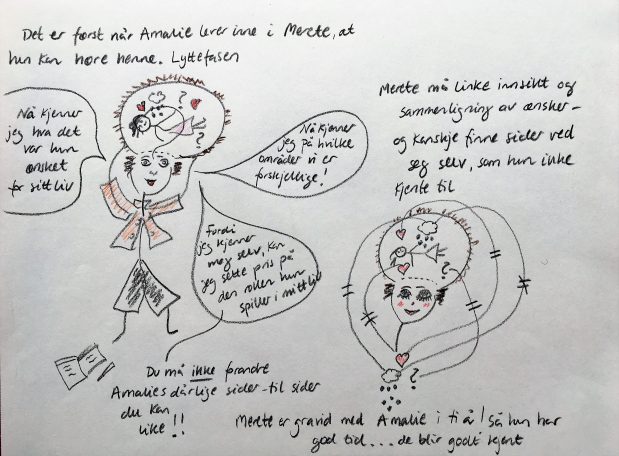 Det er først når Amalie lever inne i Merete, at
hun kan høre henne. Lyttefasen
Nå kjenner
jeg hva det
var hun
ønsket
for sitt liv
Nå kjenner
jeg på hvilke
områder vi er
forskjellige!
Fordi
jeg kjenner
meg selv, kan
jeg sette pris på
den rollen hun
spiller i mitt liv
Du må ikke forandre
Amalies dårlige sider - til sider
du kan
like!!
Merete må linke innsikt og
sammenligning av ønsker -
og kanskje finne sider ved
seg selv, som hun ikke
kjente til
?
?
?
?
Merete er gravid med Amalie i ti å! Så hun har
god tid... de blir godt kjent